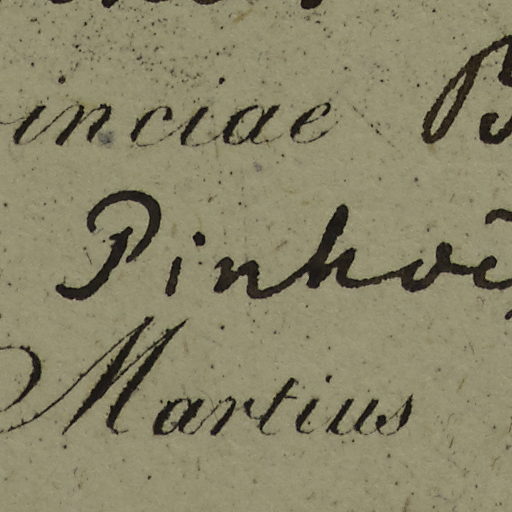 inciae
Pinhoẽ
Martius